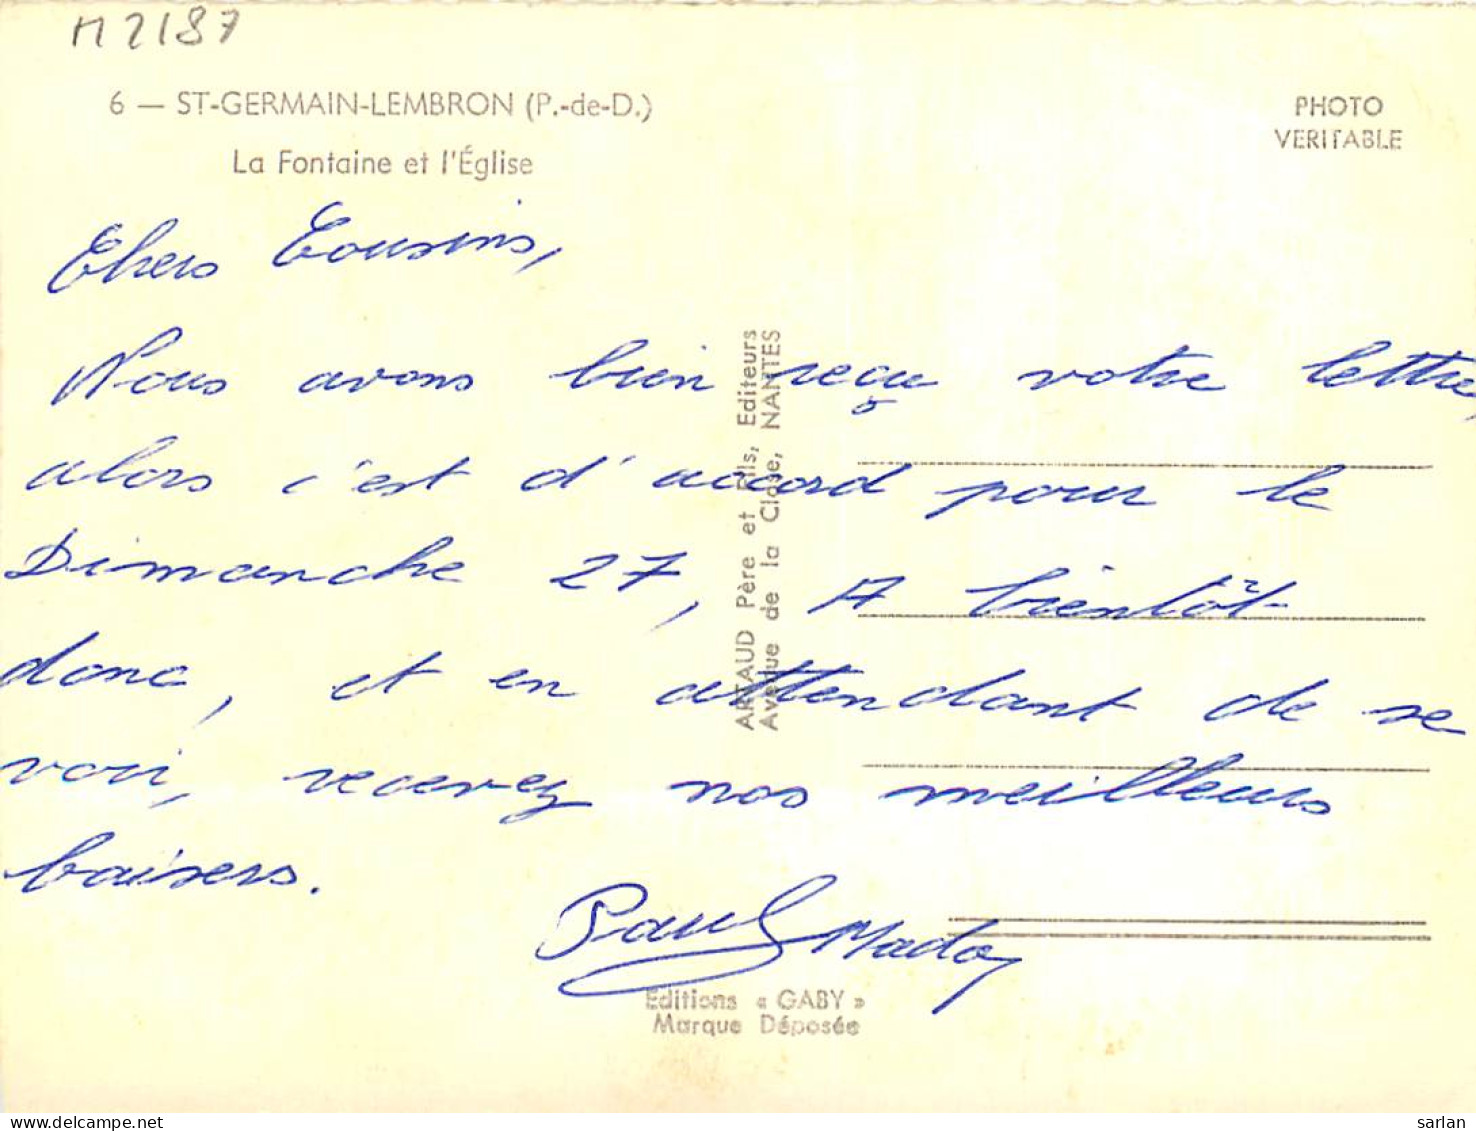 M2187
6 — ST-GERMAIN-LEMBRON (P.-de-D.)
La Fontaine et l'Église
PHOTO
VERITABLE
Chers Cousins,
Nous avons bien reçu votre lettre,
alors c'est d'accord pour le
Dimanche 27, A bientôt
donc, et en attendant de se
voir, recevez nos meilleurs
baisers.
Paul Mado
ARTAUD Père et Fils, Editeurs
Avenue de la Close, NANTES
Editions « GABY »
Marque Déposée
delcampe.net
sarlan